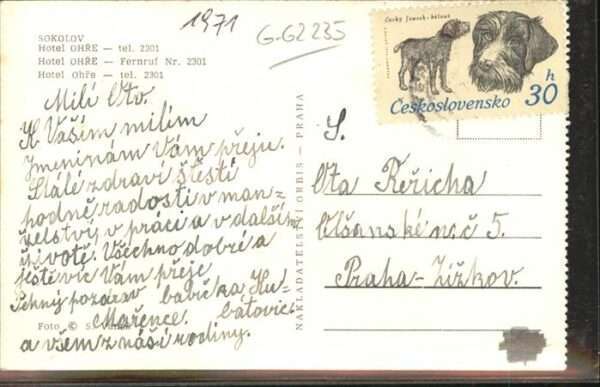 1971
G-G2235
SOKOLOV
Hotel OHŘE — tel. 2301
Hotel OHŘE — Fernruf Nr. 2301
Hotel Ohře — tel. 2301
Milí Oto.
K Vaším milím
Jmeninám Vám přeju.
Stálé zdraví štěstí
hodně radosti v man-
želství, v práci a v dalším
životě. Všechno dobré a
ještě víc Vám přeje
Pěkný pozdrav babička Ku-
Mařence. bátovic.
a všem z náší rodiny.
Foto ©
NAKLADATELSTVÍ ORBIS - PRAHA
Český fousek-hrubosrstý
Československo 30 h
S.
Ota Řeřicha
Olšanské n.č 5.
Praha-Žižkov.